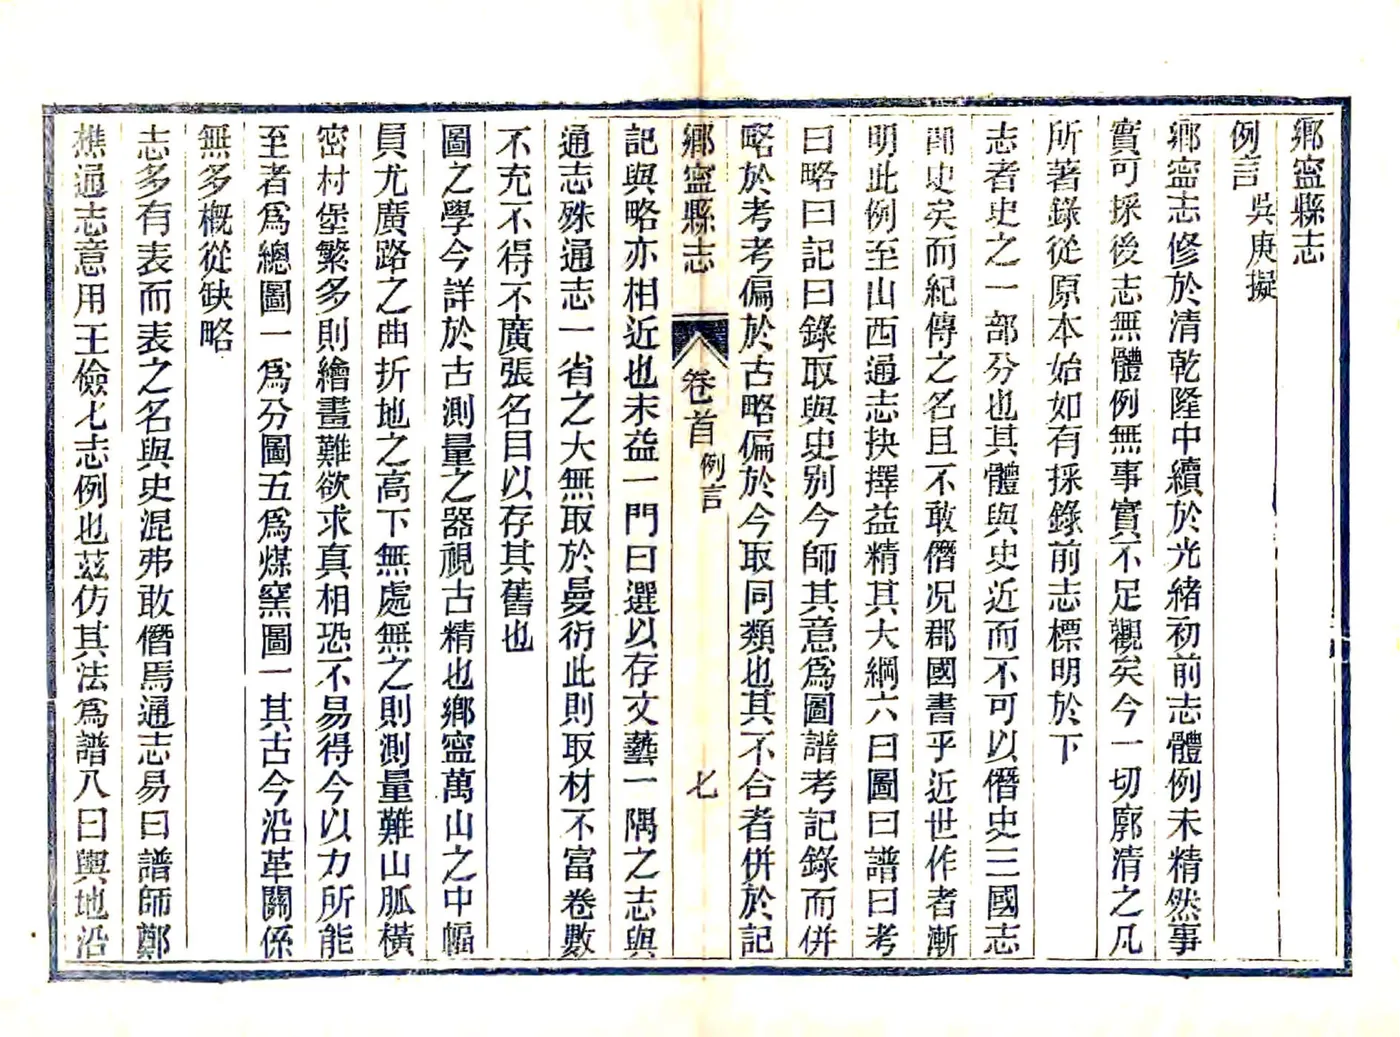 鄉寧縣志
例言
吳庚擬
鄉寧志修於清乾隆中續於光緒初前志體例未精然事
實可採後志無體例無事實不足觀矣今一切廓清之凡
所著錄從原本始如有採錄前志標明於下
志者史之一部分也其體與史近而不可以僭史三國志
間史矣而紀傳之名且不敢僭况郡國書乎近世作者漸
明此例至山西通志抉擇益精其大綱六曰圖曰譜曰考
曰略曰記曰錄取與史別今師其意爲圖譜考記錄而併
略於考考偏於古略偏於今取同類也其不合者併於記
鄉寧縣志 卷首 例言 七
記與略亦相近也末益一門曰選以存文藝一隅之志與
通志殊通志一省之大無取於曼衍此則取材不富卷數
不充不得不廣張名目以存其舊也
圖之學今詳於古測量之器視古精也鄉寧萬山之中幅
員尤廣路之曲折地之高下無處無之則測量難山脈橫
密村堡繁多則繪畫難欲求真相恐不易得今以力所能
至者爲總圖一爲分圖五爲煤窯圖一其古今沿革關係
無多概從缺略
志多有表而表之名與史混弗敢僭焉通志易曰譜師鄭
樵通志意用王儉七志例也茲仿其法爲譜八曰輿地沿